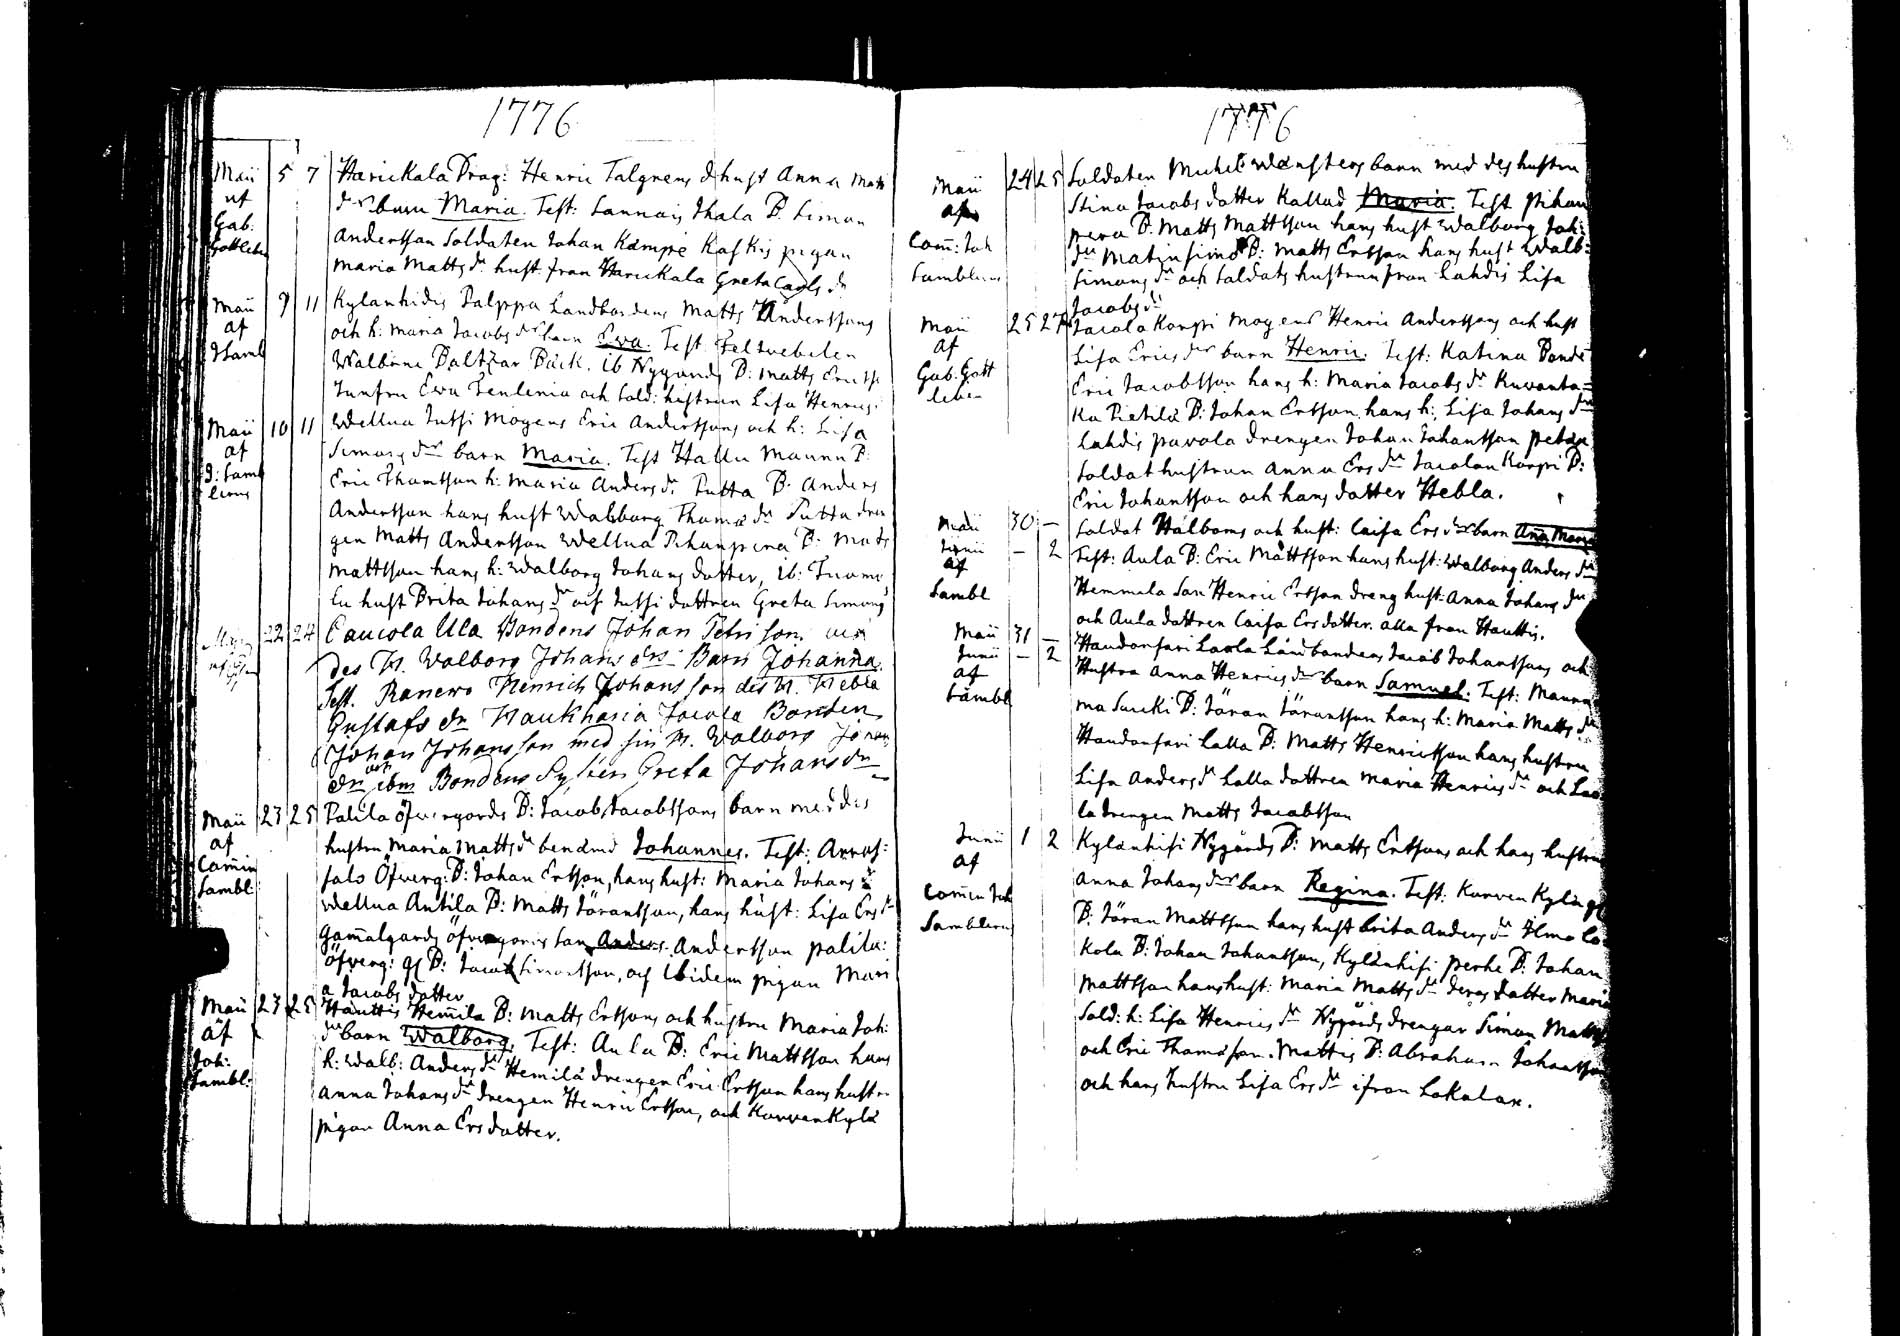 1776
Maii 5 7 Harickala Drag: Henric Talgrens & hust Anna Matts
af drs barn Maria. Test: Sannais Ihala B. Simon
Gab: Andersson Soldaten Johan Kämpe Kaskis pigan
Gottleben Maria Matts dr hust. från Harickala Greta Carls dr
Maii 9 11 Kylänhidis Palppa Landbondens Matts Anderssons
af och h: Maria Jacobs drs barn Ewa. Test: Feltwebelen
Walborne Baltzar Bäck. ib Nygårds B: Matts Ericss:
Junfru Ewa Zenlenia och Sold: hustrun Lisa Henrics:
Maii 10 11 Wellua Jussi Mogens Eric Anderssons och h: Lisa
af Simons drs barn Maria. Test Hallu Maunu B:
Eric Thomsson h: Maria Anders dr Putta B. Anders
Andersson hans hust Walborg Thoms dr Putta dren
gen Matts Andersson Wellua Pihanpera B: Matts
Mattsson hans h: Walborg Johans dotter, ib: Tuomo
la hust Brita Johans dr och Jussi dottren Greta Simons
22 24 Caucola Ula Bondens Johan Petri sons och
des H. Walborg Johans drs Barn Johanna.
Test. Ranero Henrich Johans son des H. Hebla
Gustafs dr Haukharia Jacola Bonden
Johan Johans son med sin H. Walborg Jörans
dr och ibm Bondens Syster Greta Johans dr
Maii 23 25 Palila öfvergårds B: Jacob Jacobssons barn med des
af hustru Maria Matts dr benämd Johannes. Test: Arvas=
Comin salo Öfverg: B: Johan Ersson, hans hust: Maria Johans dr
Sambl: Wellua Antila B: Matts Göransson, hans hust: Lisa Ers dr
Gamalgårds öfvergårds Son Anders Andersson palila:
öfverg: gl B: Jacob Simonsson, och Ibidem pigan Mari
a Jacobs dotter
Maii 23 25 Hauttis Hemila B: Matts Erssons och hustru Maria Joh:
af drs barn Walborg. Test: Aula B: Eric Mattsson hans
Joh: h: Walb: Anders dr Hemilä drengen Eric Ersson hans hustru
Sambl: Anna Johans dr drengen Henric Ersson, och Kurvenkylä
pigan Anna Ers dotter.
1776
Maii 24 25 Soldaten Michel Wensters barn med des hustru
af Stina Jacobs dotter Kallad Maria. Test Pihan
Com: Joh pera B: Matts Mattsson hans hust Walborg Joh:
dr Matinsimo B: Matts Ersson hans hust Walb:
Samblerus Simons dr och Soldats hustrun från Lahdis Lisa
Jacobs dr
Maii 25 27 Jacola Korpi Mogens Henric Anderssons och hust
af Lisa Erics drs barn Henric. Test: Katina Bonde
Gab: Gott Eric Jacobsson hans h: Maria Jacobs dr Kuvanta=
leben Ka Pietilä B: Johan Ersson, hans h: Lisa Johans dr
Lahdis pavola drengen Johan Johansson
Soldat hustrun Anna Ers dr Jacolan Korpi B:
Eric Johansson och hans dotter Hebla.
Maii 30 — Soldat Halboms och hust: Caisa Ers drs barn Anna Maria
Junii — 2 Test: Aula B: Eric Mattsson hans hust: Walborg Anders dr
af Hemmala Son Henric Ersson dreng hust: Anna Johans dr
Sambl och Aula dottren Caisa Ers dotter. alla från Hauttis.
Maii 31 — Haudonsari Laola Landbondens Jacob Johanssons och
Junii — 2 Hustru Anna Henrics drs barn Samuel. Test: Maunu
af
Sambl ma Suicki B: Jöran Jöransson hans h: Maria Matts dr
Haudonsari Lalla B: Matts Henricsson hans hustru
Lisa Anders dr Lalla dottren Maria Henrics dr och Lao
la drengen Matts Jacobsson
Junii 1 2 Kylänhisi Nygårds B: Matts Erssons och hans hustru
af Anna Johans drs barn Regina. Test: Kurven Kylä gl
Comin Joh B: Jöran Mattsson hans hust Brita Anders dr Ilmo Co
Samblerus Kola B: Johan Johansson, Kylänhisi perhe B: Johan
Mattsson hans hust: Maria Matts dr deras dotter Maria
Sold: h: Lisa Henrics dr Nygårds drengar Simon Matts
och Eric Thomæson. Mattis B: Abraham Johansson
och hans hustru Lisa Ers dr ifrån Lokalax.